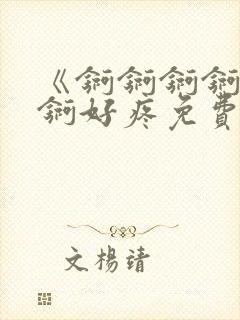 《锕锕锕锕
锕好疼免費
文楊靖